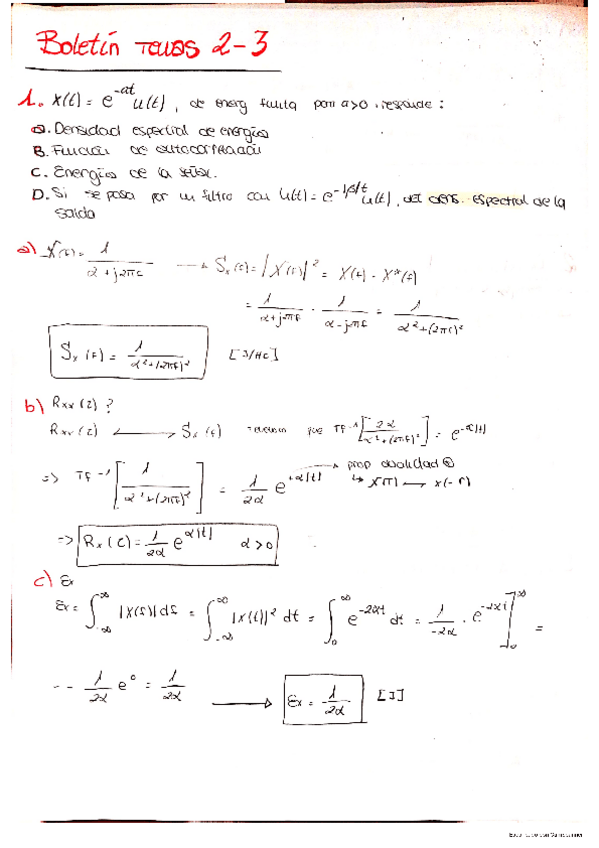 Boletín Temas 2-3
1. x(t) = e^-αt u(t), de energ finita para α>0, responde:
a. Densidad espectral de energía
B. Función de autocorrelación
C. Energía de la señal.
D. Si se pasa por un filtro con h(t) = e^-|β|t u(t), det dens. espectral de la salida
a) X(f) = 1 / (α + j2πf) → Sx(f) = |X(f)|² = X(f) · X*(f)
= 1 / (α+j2πf) · 1 / (α-j2πf) = 1 / (α²+(2πf)²)
Sx(f) = 1 / (α²+(2πf)²) [J/Hz]
b) Rxx(τ)?
Rxx(τ) ⟷ Sx(f) que TF⁻¹[2α / (α²+(2πf)²)] = e^-α|t|
=> TF⁻¹[1 / (α²+(2πf)²)] = 1/2α e^+α|t| → prop dualidad
↳ X(T) ⟷ x(-f)
=> Rx(τ) = 1/2α e^α|t| α>0
c) Ex
Ex = ∫_-∞^∞ |X(f)| df = ∫_-∞^∞ |x(t)|² dt = ∫_0^∞ e^-2αt dt = 1/-2α · e^-2αt ]_0^∞ =
-- 1/2α e⁰ = 1/2α → Ex = 1/2α [J]